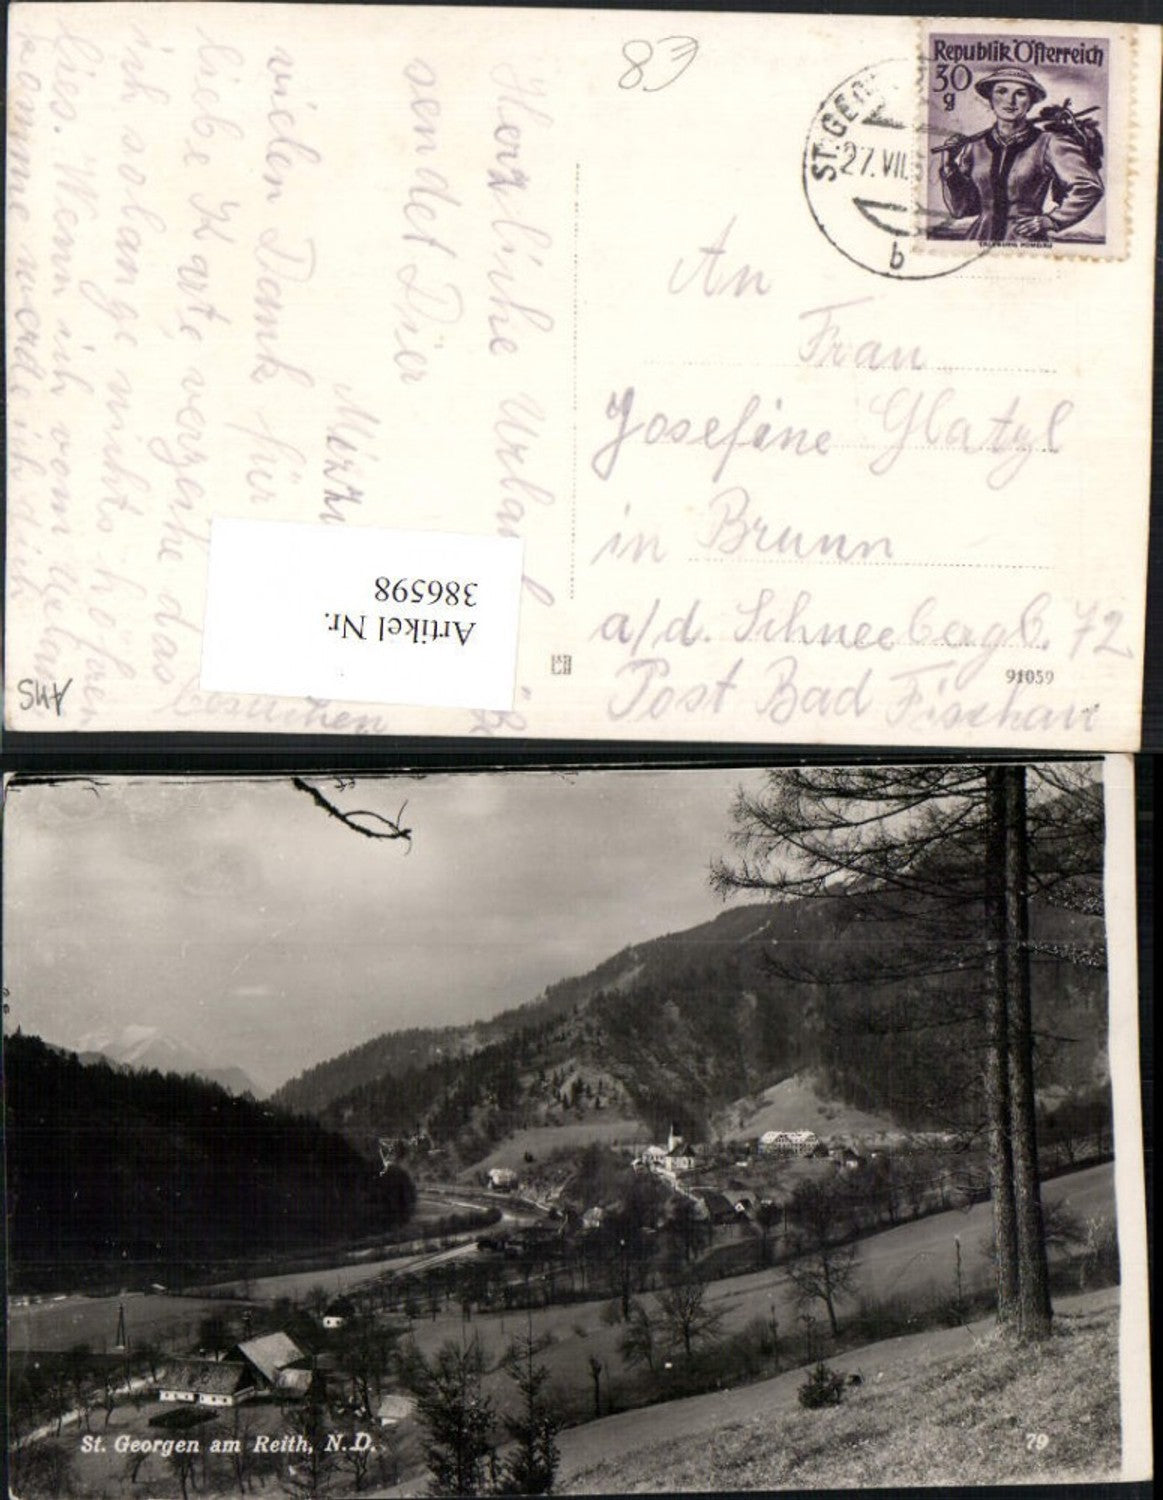 83
Republik Österreich
30
g
ST. GEOR
27. VII. 5
b
Herzliche Urlau
sendet Dier
Mizzi
vielen Dank für
liebe Karte, verzeihe das
ich solange nichts hören
lies. Wenn ich vom Urlau
komme werde ich dich
besuchen
An
Frau
Josefine Glatzl
in Brunn
a/d. Schneebergb. 72
Post Bad Fischau
91059
Artikel Nr.
386598
AHS
St. Georgen am Reith, N. D.
79